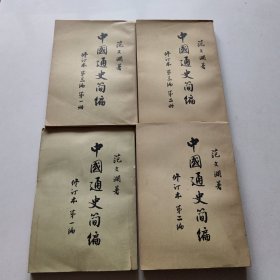 范文澜著
中國通史简编
修订本 第三编 第一册
范文澜著
中國通史简编
修订本 第三编 第二册
范文澜著
中國通史简编
修订本 第一编
范文澜著
中國通史简编
修订本 第二编